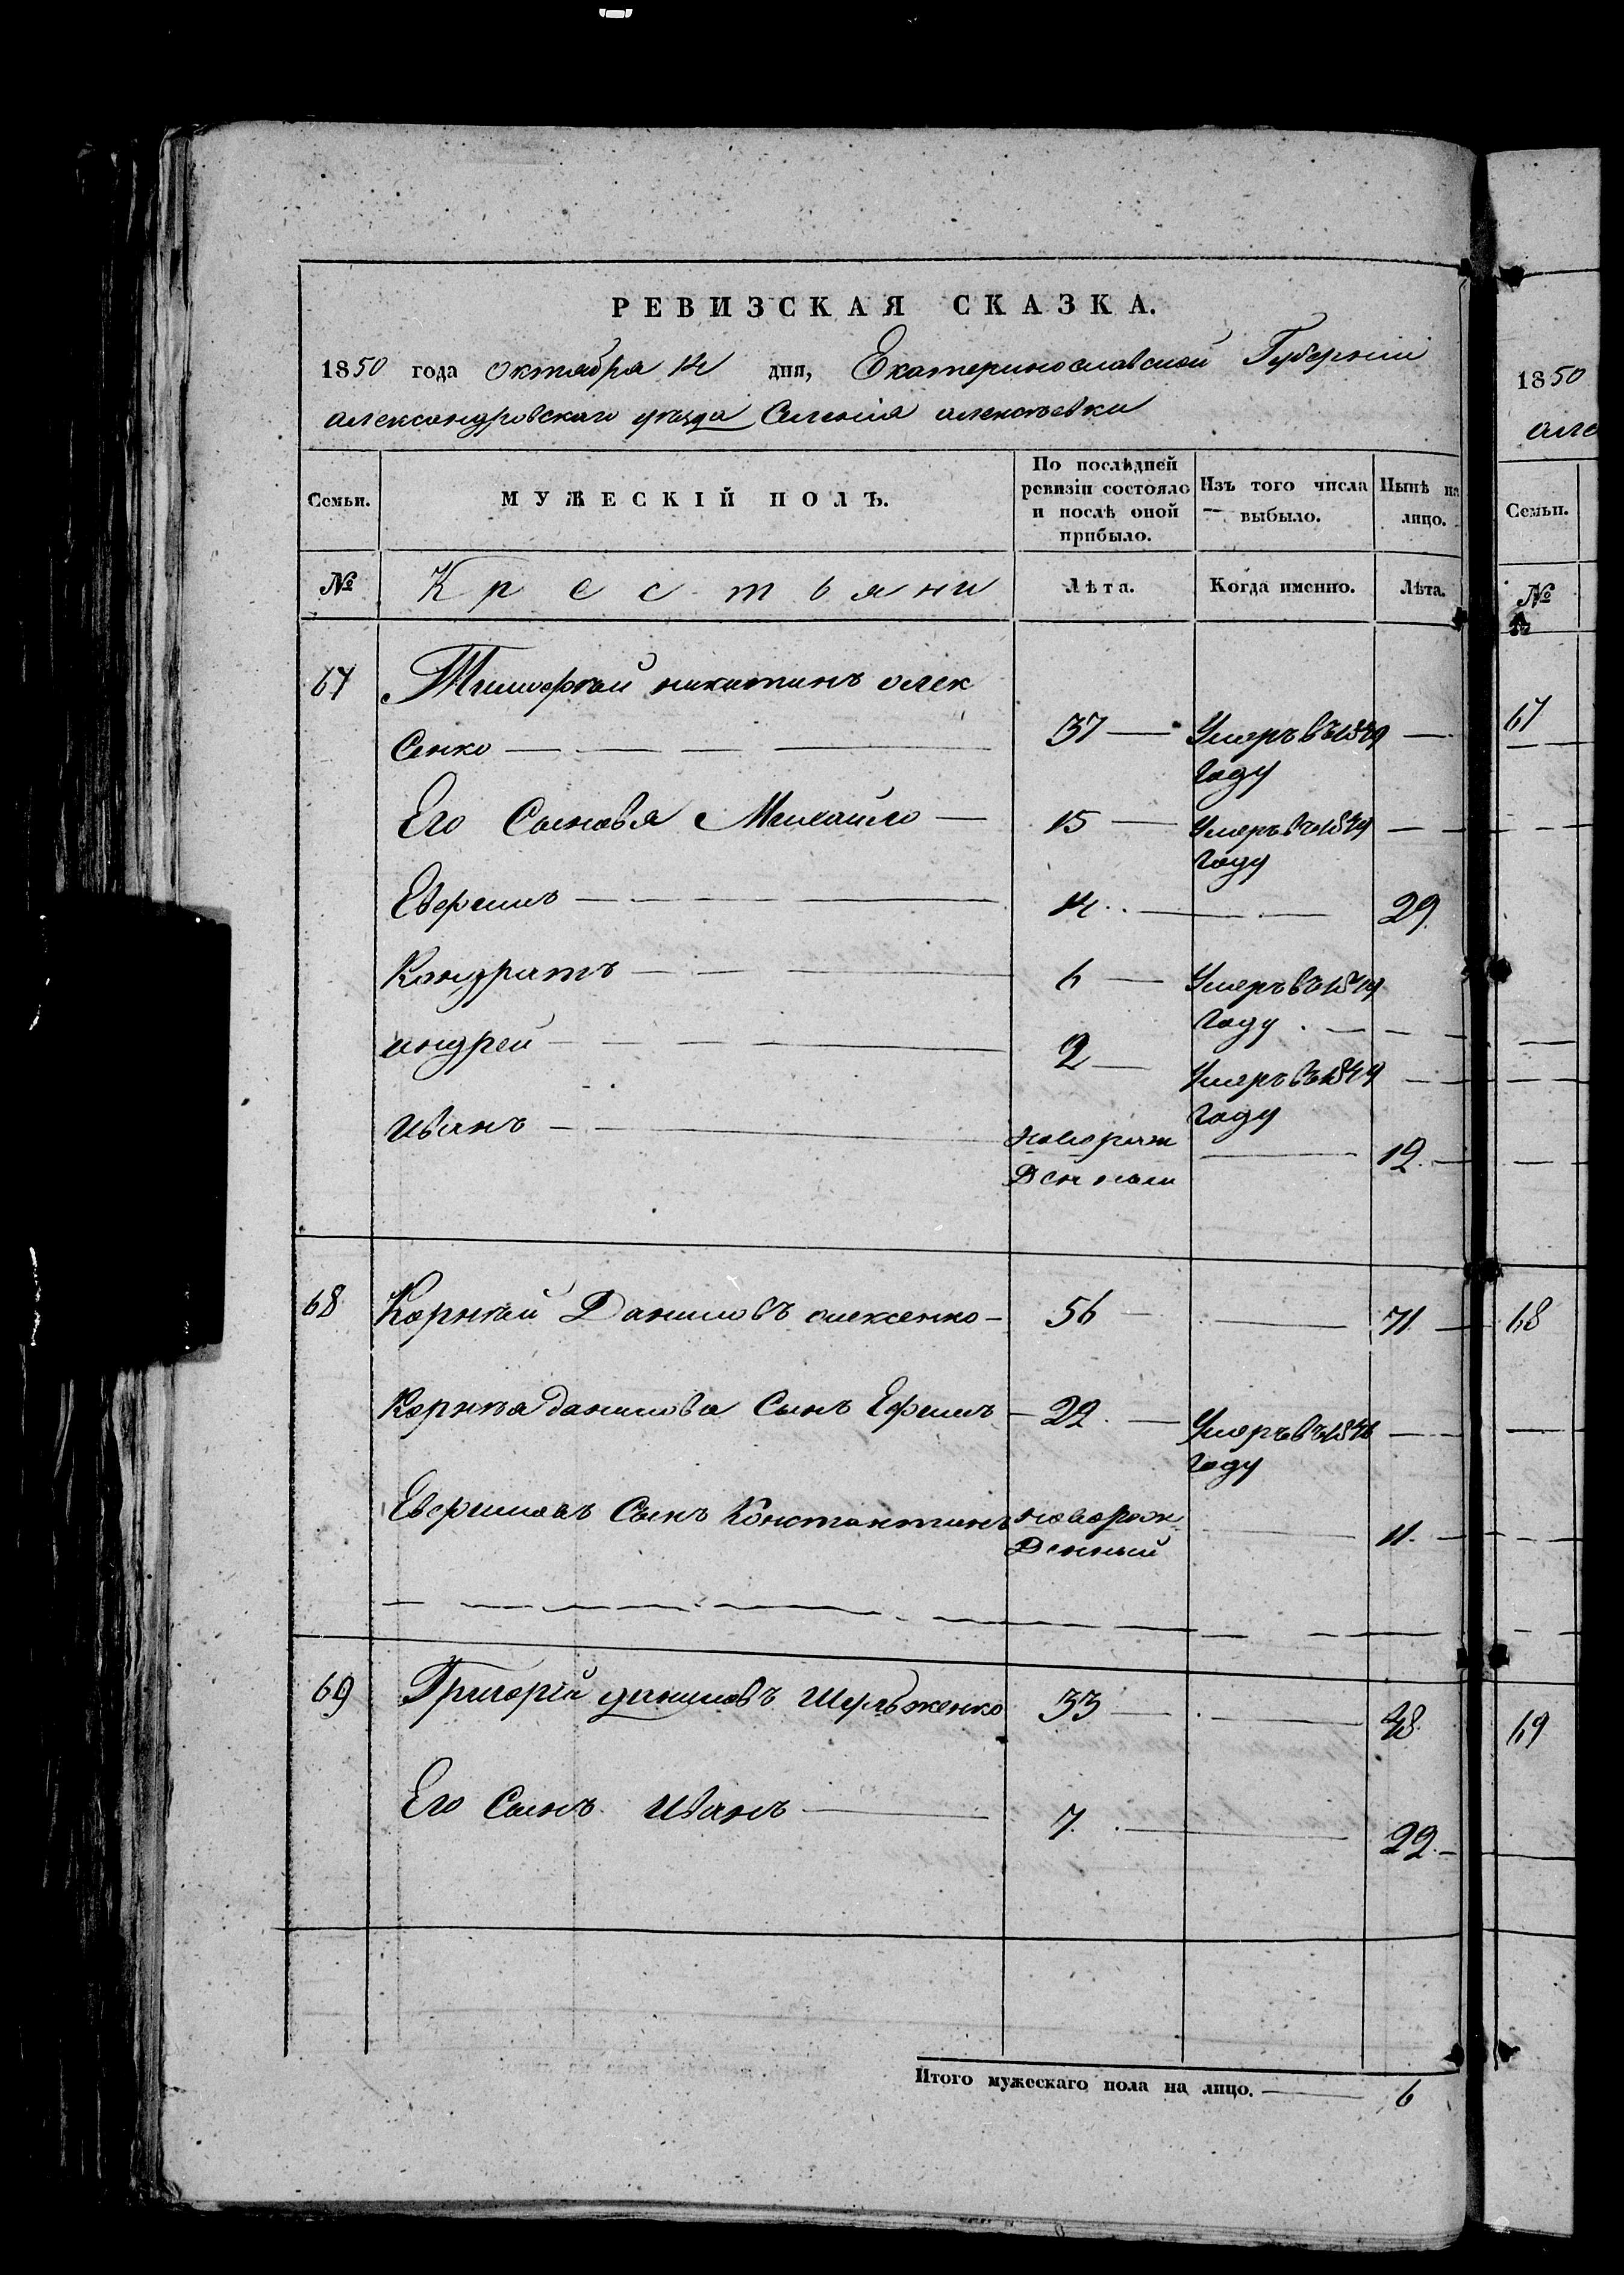 РЕВИЗСКАЯ СКАЗКА.
1850 года октября 14 дня, Екатеринославской Губернии
александровскаго уезда Селения алексеевки
Семьи. МУЖЕСКІЙ ПОЛЪ. По послѣдней ревизіи состояло и послѣ оной прибыло. Изъ того числа выбыло. Нынѣ на лицо.
№ Крестьяни Лѣта. Когда именно. Лѣта.
67 Тимофѣй никитинъ олек
Сенко 37 Умеръ въ 1849
году
Его Сыновя Михайло 15 Умеръ въ 1849
году
Евфимъ 14 29
Кондратъ 6 Умеръ въ 1849
году
андрей 2 Умеръ въ 1849
году
иванъ новорож
Денныи 12
68 Корнѣй Даниловъ олексенко 56 71
Корнѣя данилова Сынъ Ефимъ 22 Умеръ въ 1846
году
Евфимовъ Сынъ Константинъ новорож
Денный 11
69 Григорій даниловъ Шульженко 33 48
Его Сынъ иванъ 7 22
Итого мужескаго пола на лицо. 6
1850
але
Семьи.
№
67
68
69